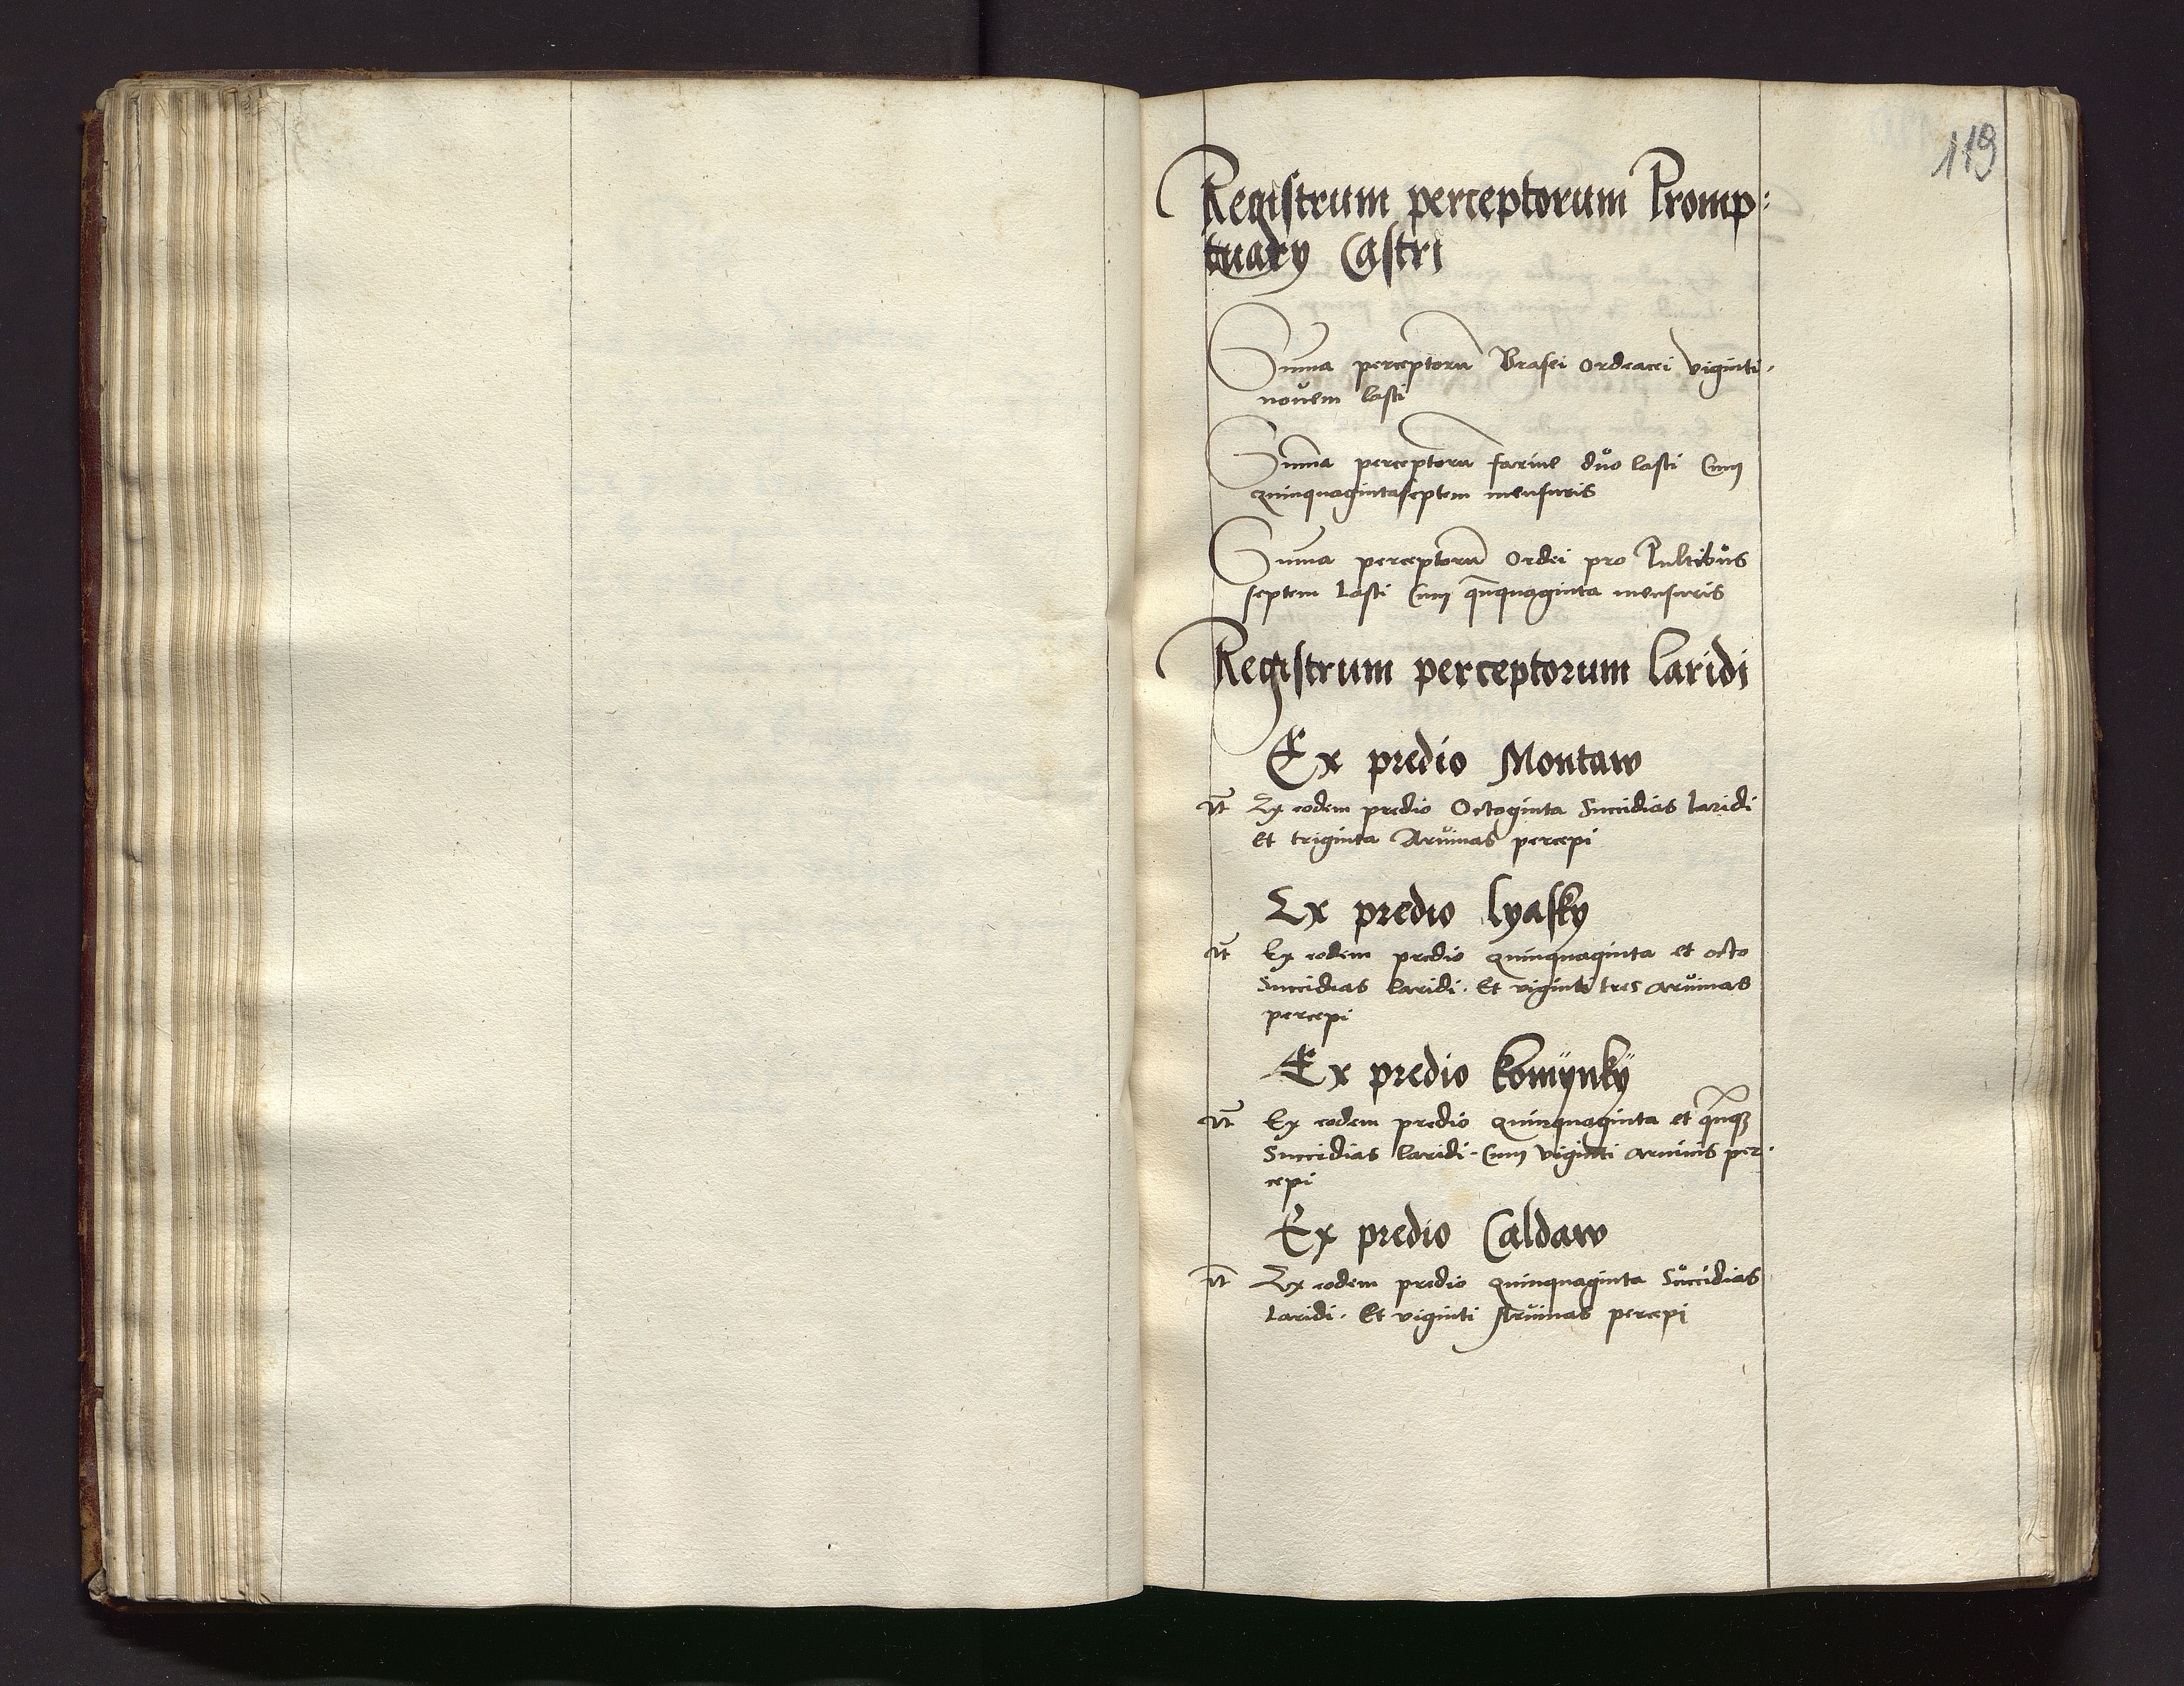 119
Registrum perceptorum Promp:
tuary Castri
Summa perceptorum Brasei ordeacei viginti-
novem lasti
Summa perceptorum farine duo lasti Cum
quinquagintaseptem mensuris
Summa perceptorum ordei pro Pultibus
septem lasti Cum quinquaginta mensuris
Registrum perceptorum laridi
Ex predio Montaw
Item Ex eodem predio Octoginta Succidias laridi
Et triginta Aruinas percepi
Ex predio lyasky
Item Ex eodem predio quinquaginta et octo
Succidias laridi. Et viginti tres aruinas
percepi
Ex predio komÿnkÿ
Item Ex eodem predio quinquaginta et quinque
Succidias laridi. Cum viginti aruinis per-
cepi
Ex predio Caldaw
Item Ex eodem predio quinquaginta Succidias
laridi. Et viginti Aruinas percepi